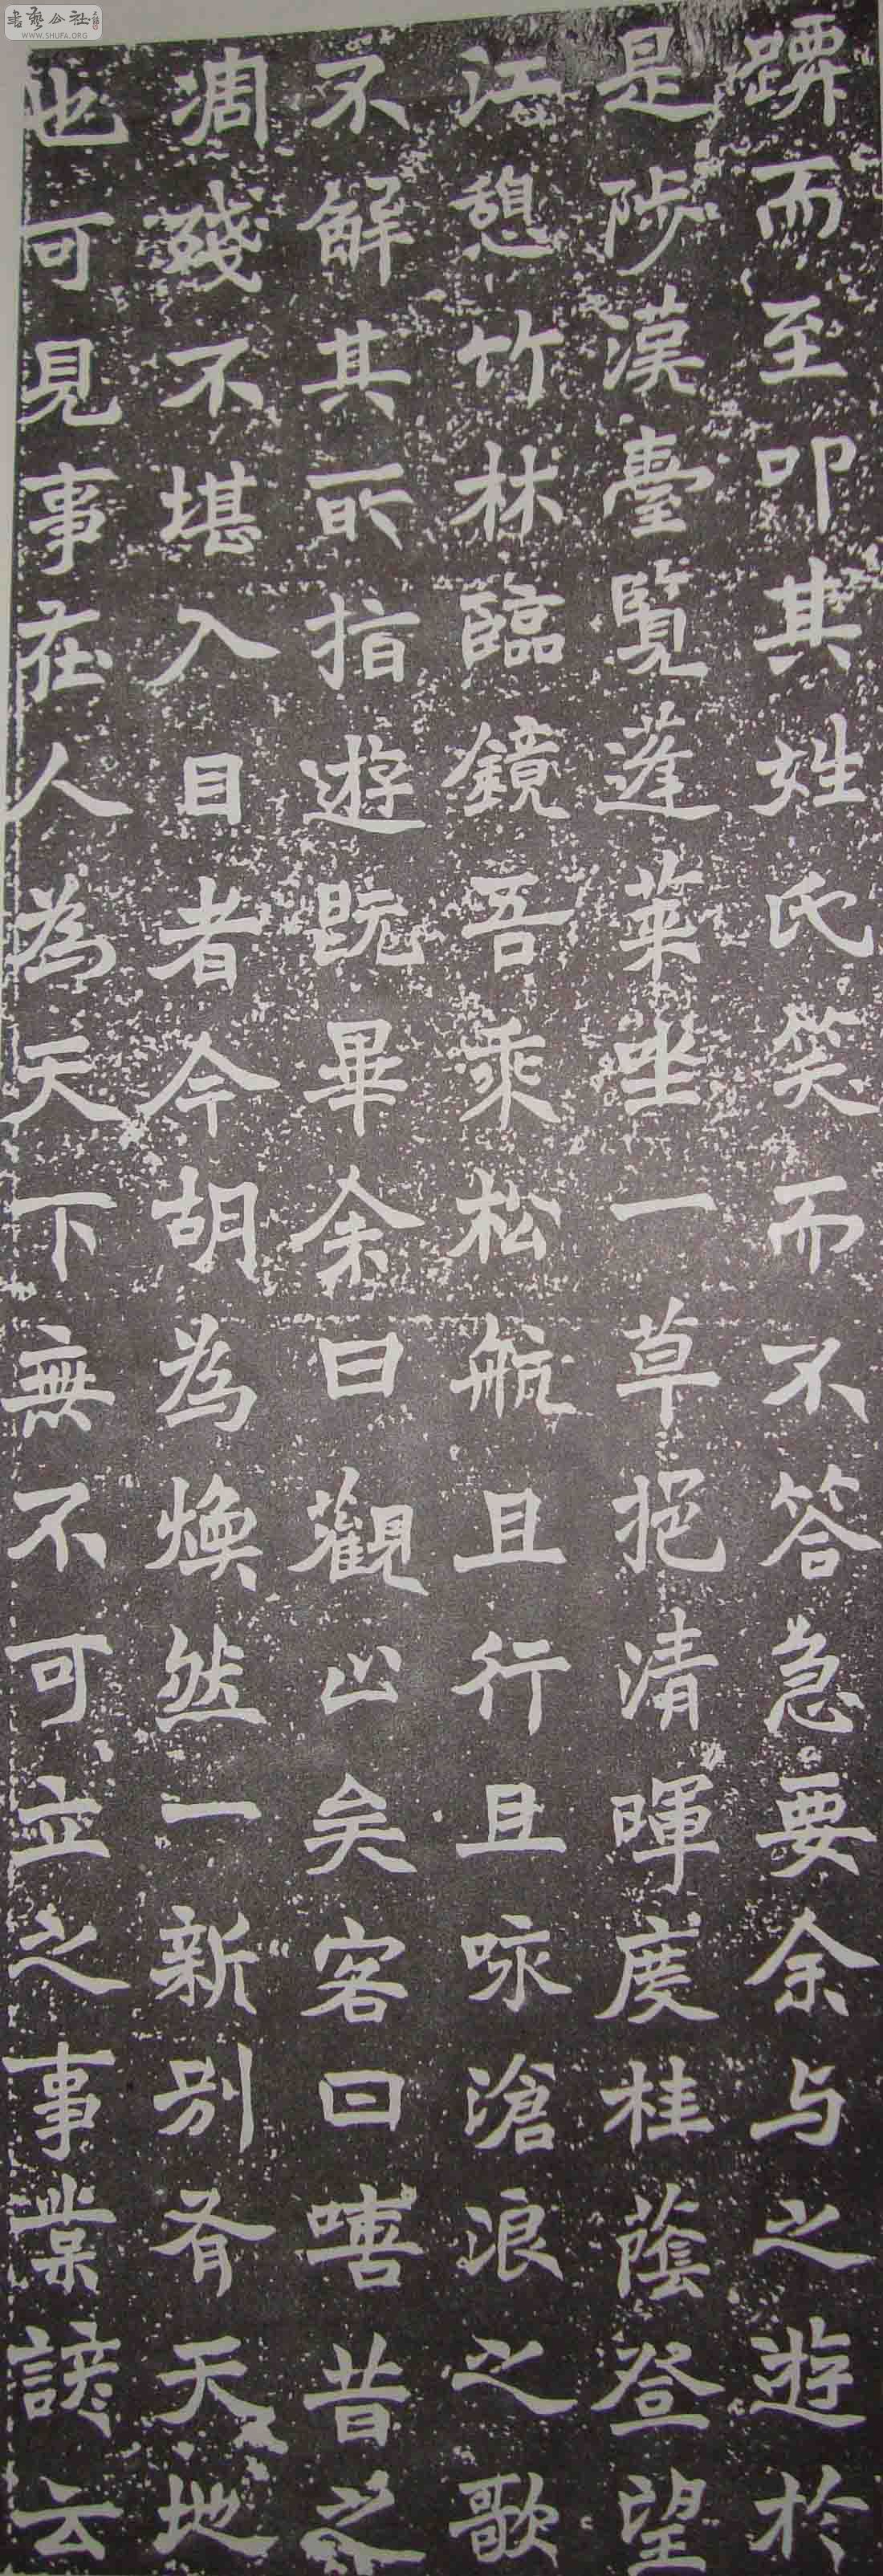 書藝公社
WWW.SHUFA.ORG
而至叩其姓氏笑而不答急要余与之遊於
是陟漢臺覽蓬萊坐一草挹清暉度桂蔭登望
江憩竹林臨鏡吾乘松航且行且咏滄浪之歌
不解其所指遊既畢余曰觀止矣客曰嘻昔之
凋殘不堪入目者今胡為煥然一新別有天地
也可見事在人為天下無不可立之事業諺云